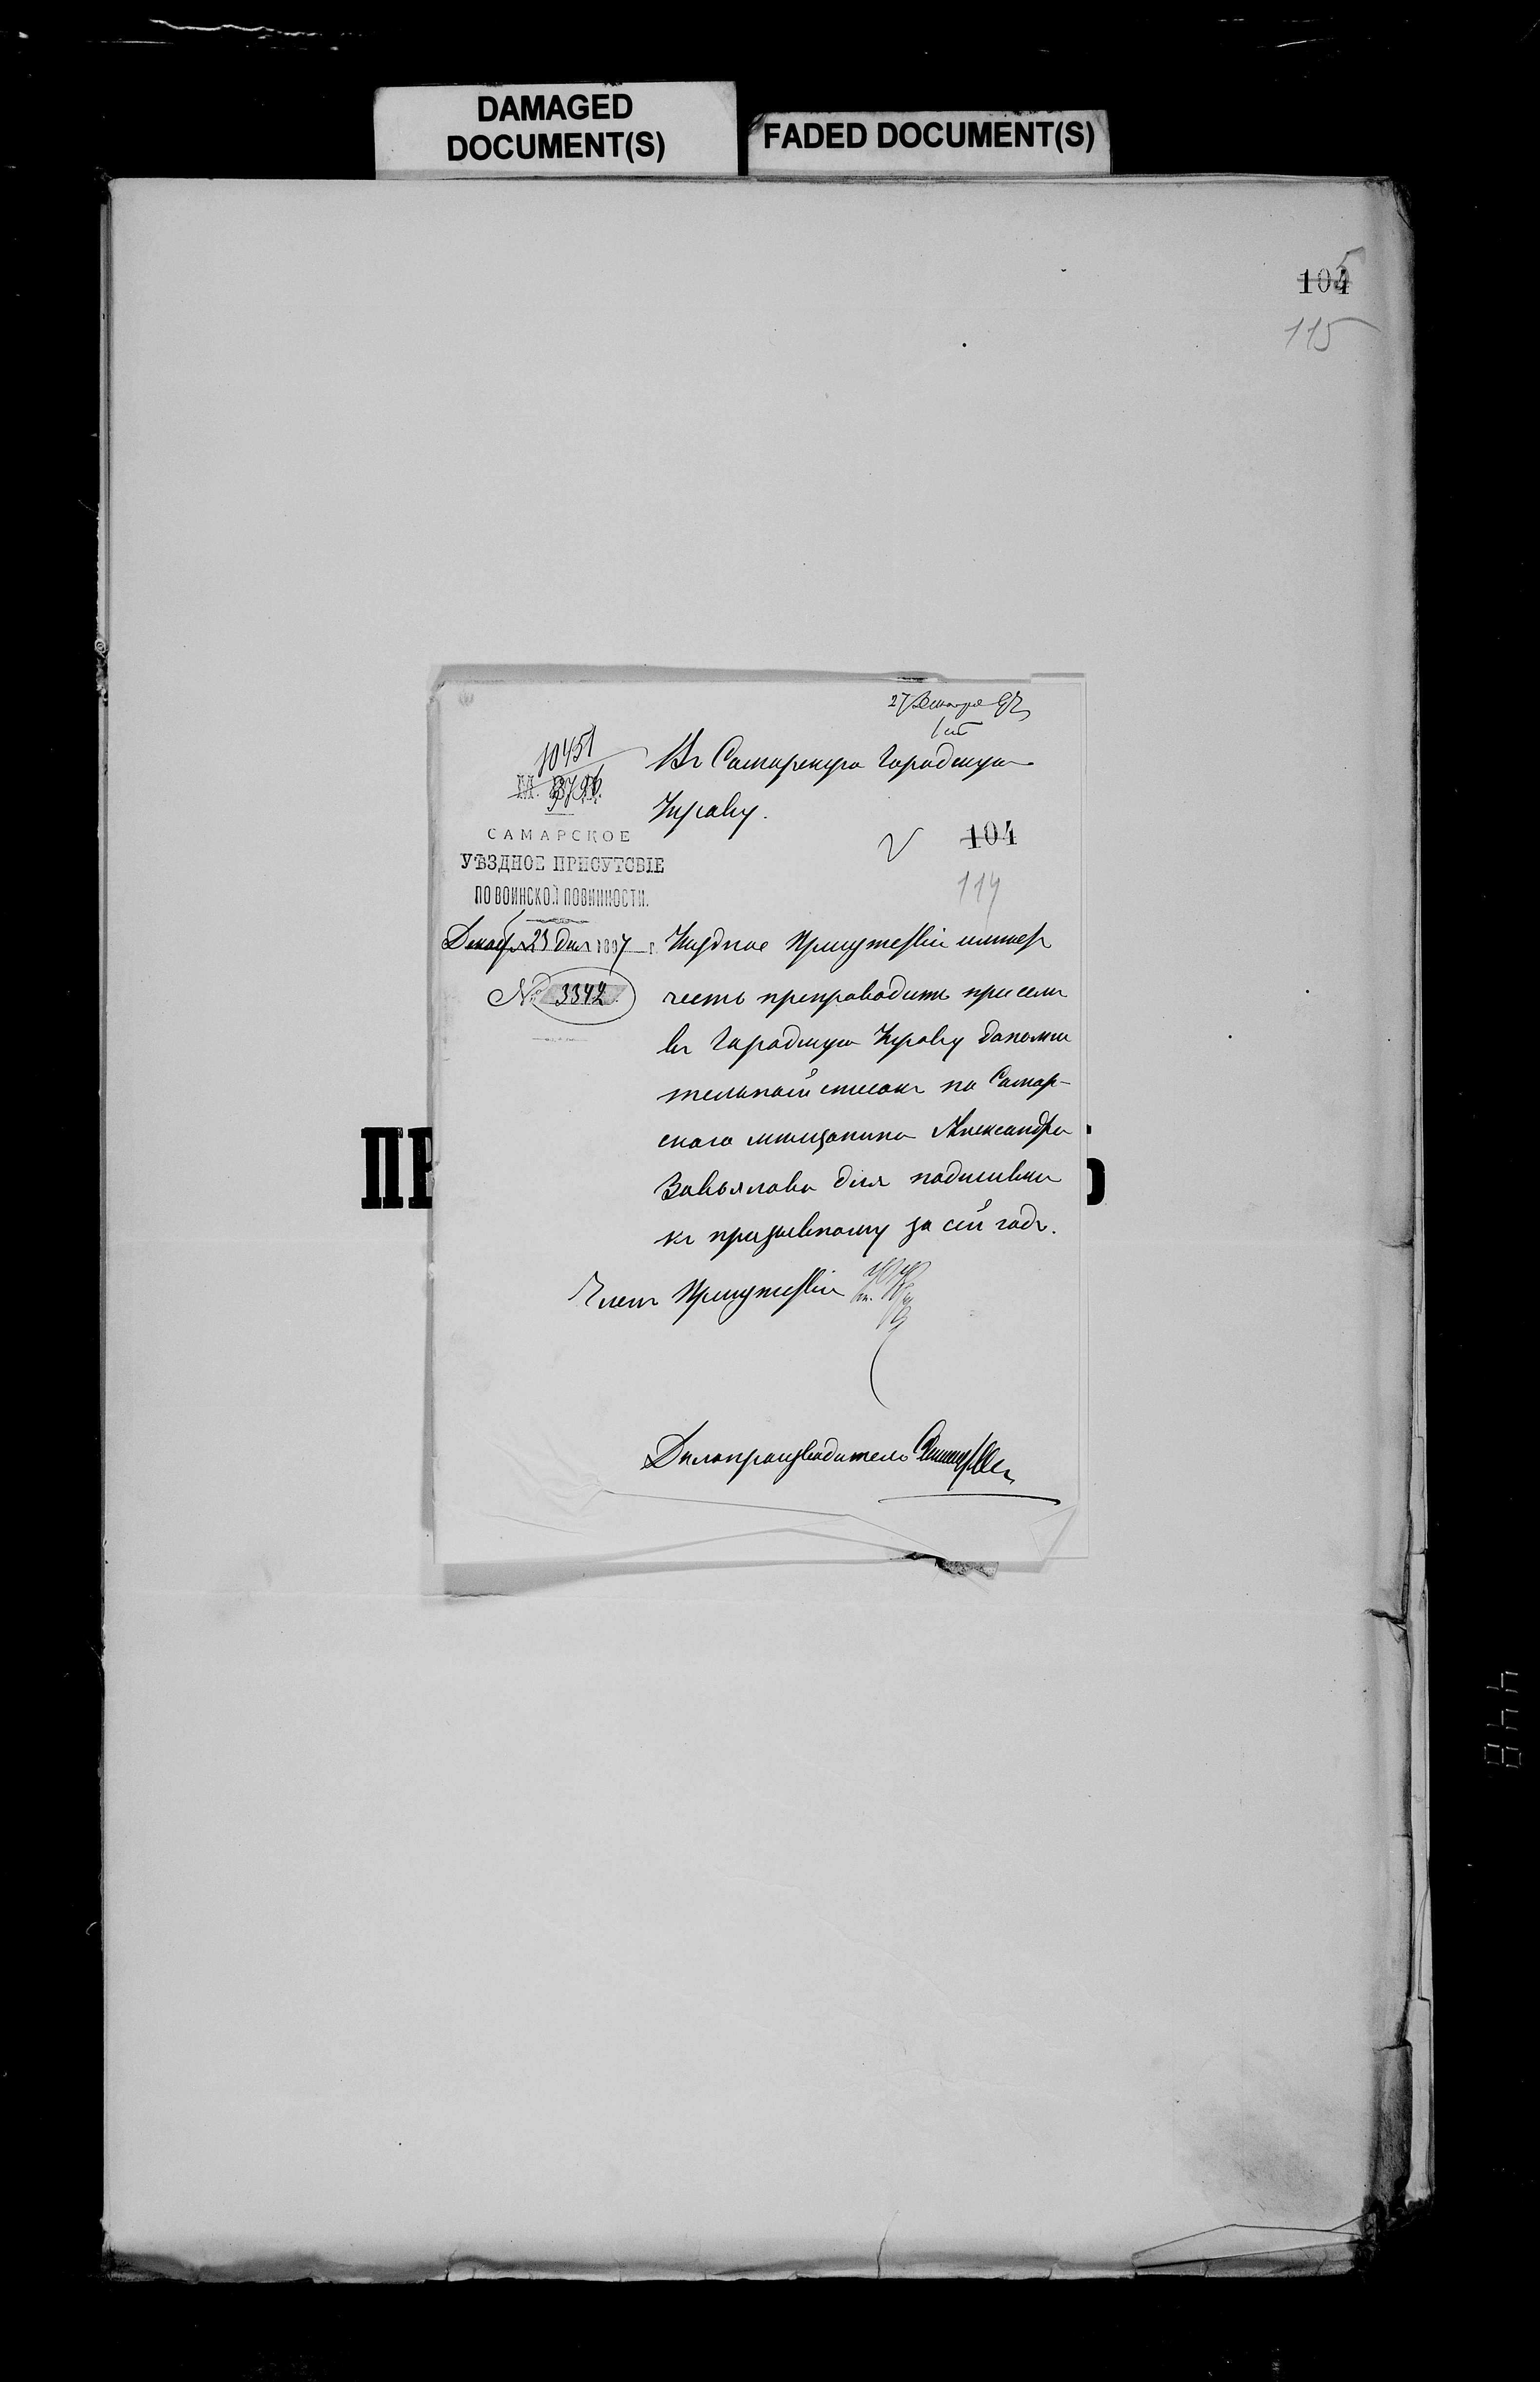 DAMAGED
DOCUMENT(S)
FADED DOCUMENT(S)
104
5
115
27 Декабря 97
10451
САМАРСКОЕ
УѢЗДНОЕ ПРИСУТСВІЕ
ПО ВОИНСКОЙ ПОВИННОСТИ.
Декабря 23 дня 1897 г.
№ 3342
Въ Самарскую Городскую
Управу.
104
114
Уѣздное Присутствіе имѣетъ
честь препроводить при семъ
въ Городскую Управу дополни
тельный списокъ на Самар-
скаго мѣщанина Александра
Завьялова для подшивки
къ призывному за сей годъ.
Членъ Присутствія
Дѣлопроизводитель
ПР
448